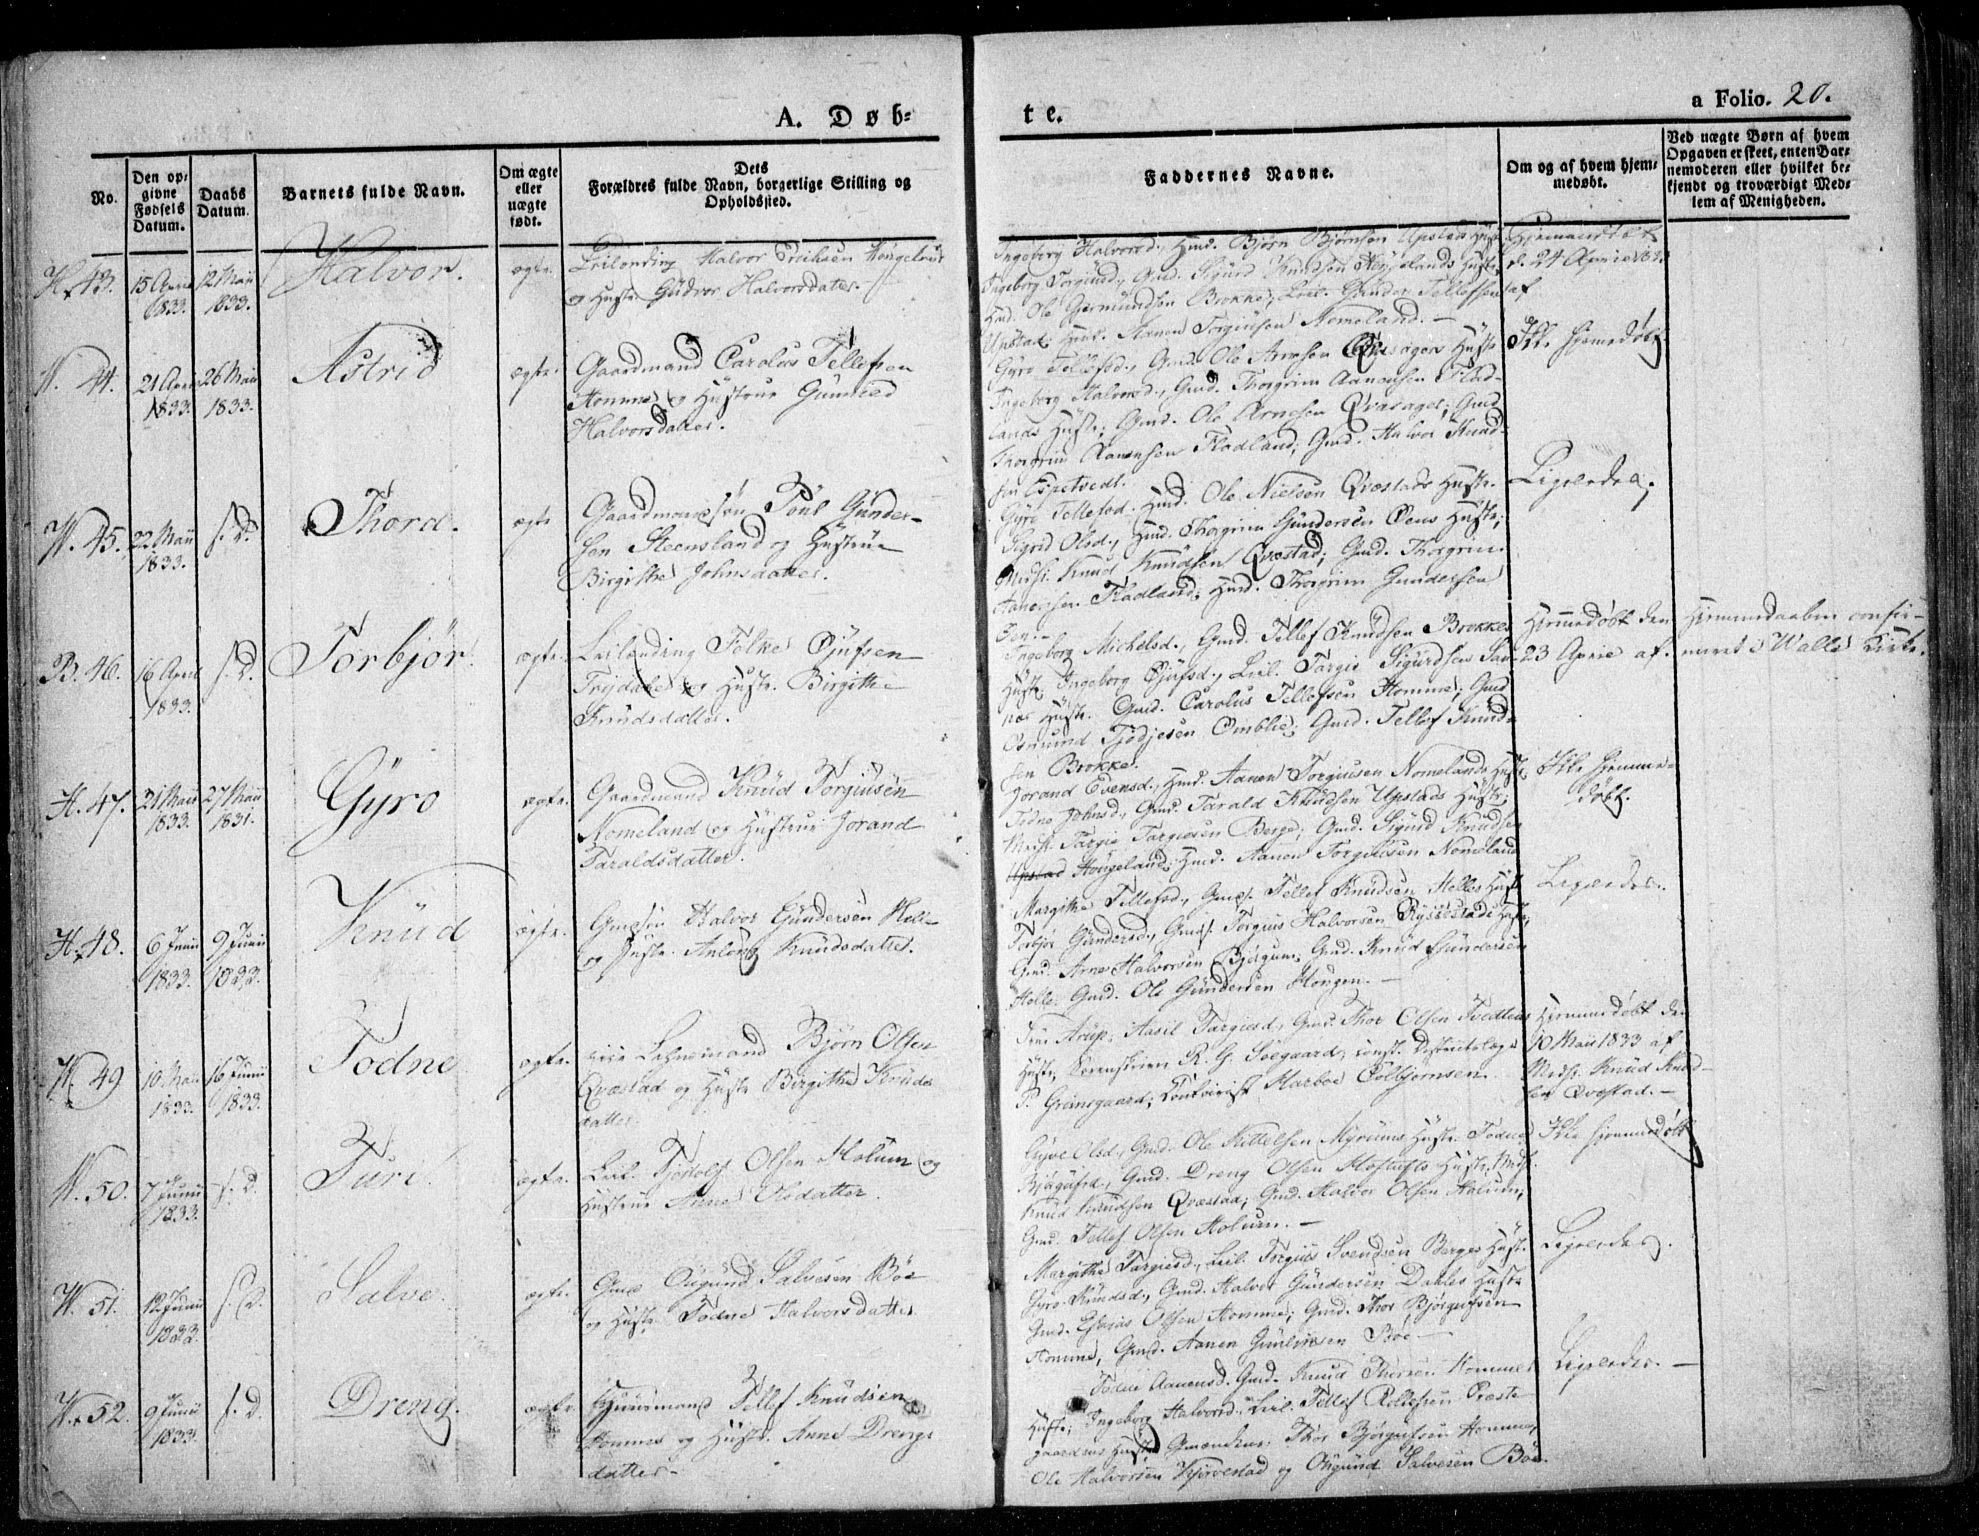 A. Døb-
te.
a Folio. 20.
No.
Den op-
givne
Fødsels
Datum.
Daabs
Datum.
Barnets fulde Navn.
Om ægte
eller
uægte
født.
Dets
Forældres fulde Navn, borgerlige Stilling og
Opholdssted.
Faddernes Navne.
Om og af hvem hjem-
medøbt.
Ved uægte Børn af hvem
Opgaven er skeet, enten Bar-
nemoderen eller hvilket be-
kjendt og troværdigt Med-
lem af Menigheden.
H. 43.
15 April
1833.
12 Maii
1833.
Halvor.
ægte.
Leilending Halvor
og Hustr. Gudvor Halvorsdatter.
Ingeborg Halvorsd., Gmd. Bjørn Bjørnsen Upstads Hustr.
Ingeborg Torgiusd., Gmd. Sigurd Knudsen
Hmd. Ole Germundsen Brokke; Leil. Gunder Tellefsen
Upstad; Hmd. Aanen Torgiusen Nomeland. -
Hjemmedøbt
d. 24 April 1833
af
W. 44.
21 April
1833.
26 Maii
1833.
Astrid
ægte.
Gaardmand Carolus Tellefsen
Homme og Hustrue Gunnild
Halvorsdatter.
Gyro Tellefsd., Gmd. Ole Arnesen Qvasager Hustr.
Ingeborg Halvorsd., Gmd. Thorgrim Aanensen Flad-
lands Hustr.; Gmd. Ole Arnesen Qvasager; Gmd.
Thorgrim Aanensen Fladland; Gmd. Halvor Knud-
sen Espetvedt.
Ikke hjemmedøbt.
W. 45.
22 Maii
1833.
s. D.
Thord.
ægte
Gaardmandssøn Poul Gunder-
sen Steensland og Hustrue
Birgithe Johnsdatter.
Gyro Tellefsd., Hmd. Ole Nielsen Qvæstads Hustr.
Sigrid Olsd., Hmd. Thorgrim Gundersen Øens Hustr.;
Knud Knudsen Qvæstad; Gmd. Thorgrim
Aanensen Fladland; Hmd. Thorgrim Gundersen
Øen. -
Ligeledes.
B. 46.
16 April
1833.
s. D.
Torbjør.
ægte.
Leilending Folke Øjufsen
Trydale og Hustr. Birgithe
Knudsdatter.
Ingeborg Michelsd., Gmd. Tellef Knudsen Brokkes
Hustr. Ingeborg Øjufsd., Leil. Targie Sigurdsen
Hustr. Gmd. Carolus Tellefsen Homme; Gmd.
Osmund Omblie; Gmd. Tellef Knud-
sen Brokke.
Hjemmedøbt den
23 April af.
Hjemmedaaben confir-
meret i Walle Kirke.
H. 47.
21 Maii
1833.
27 Maii
1831.
Gyro
ægte.
Gaardmand Knud Torgiusen
Nomeland og Hustrue Jorand
Taraldsdatter.
Jorand Evensd., Hmd. Aanen Torgiusen Nomelands Hustr.
Todne Johnsd., Gmd. Tarald Knudsen Upstads Hustr.;
Targie Targiesen Berge; Gmd. Sigurd Knudsen
Upstad Hougeland; Hmd. Aanen Torgiusen Nomeland
Ikke hjemme-
døbt.
H. 48.
6 Junii
1833.
9 Junii
1833.
Knud
ægte.
Gmdssøn Halvor Gundersen Helle
og Hustr. Knudsdatter.
Margithe Tellefsd., Gmd. Tellef Knudsen Helles Hustr.
Torbjør Gundersd., Torgius Halvorsen Rysstads Hustr.
Gmd. Arne Halvorsen Bjørgum; Gmd. Knud Gundersen
Helle; Gmd. Ole Gundersen Hougen. -
Ligeledes.
W. 49
10 Maii
1833.
16 Junii
1833.
Todne
ægte.
Lehnsmand Bjørn Olsen
Qvæstad og Hustr. Birgithe Knuds-
datter.
Aasil Targiesd., Gmd. Thor Olsen Tvedtens
Hustr., Sorenskriver R. G. Soegaard, const. Districtslæge
P. Grønsgaard; Contoirist Harboe
Hjemmedøbt den
10 Maii 1833 af
Knud Knud-
sen Qvæstad. -
W. 50.
7 Junii
1833.
s. D.
Turi
ægte.
Leil. Tjodolf Olsen Holum og
Hustrue Anne Olsdatter.
Gyro Olsd., Gmd. Ole Kittelsen Myrums Hustr. Todne
Bjørgufsd., Gmd. Dreng Olsen Hustr.
Knud Knudsen Qvæstad; Gmd. Halvor Olsen Holum;
Gmd. Tellef Olsen Holum. -
Ikke hjemmedøbt
W. 51.
12 Junii
1833.
s. D.
Salve.
ægte.
Gmd Augund Salvesen Bøe
og Hustr. Todne Halvorsdatter
Margithe Targiesd., Leil. Torgius Svendsen Berges Hustr.
Gyro Knudsd., Gmd. Halvor Gundersen Dahles Hustr.
Gmd. Esaias Olsen Homme; Gmd. Thor Bjørgufsen
Homme, Gmd. Aanen Gunleiksen Bøe -
Ligeledes.
W. 52.
9 Junii
1833.
s. D.
Dreng.
ægte.
Huusmand Tellef Knudsen
Homme og Hustr. Anne Drengs-
datter -
Todne Aanensd. Gmd. Knud Hommes
Hustr.; Ingeborg Halvorsd., Leil. Tellef Rollefsen Præste-
gaardens Hustr. Gmændene: Thor Bjørgufsen Homme,
Ole Halvorsen Kjørvestad og Augund Salvesen Bøe.
Ligeledes. -